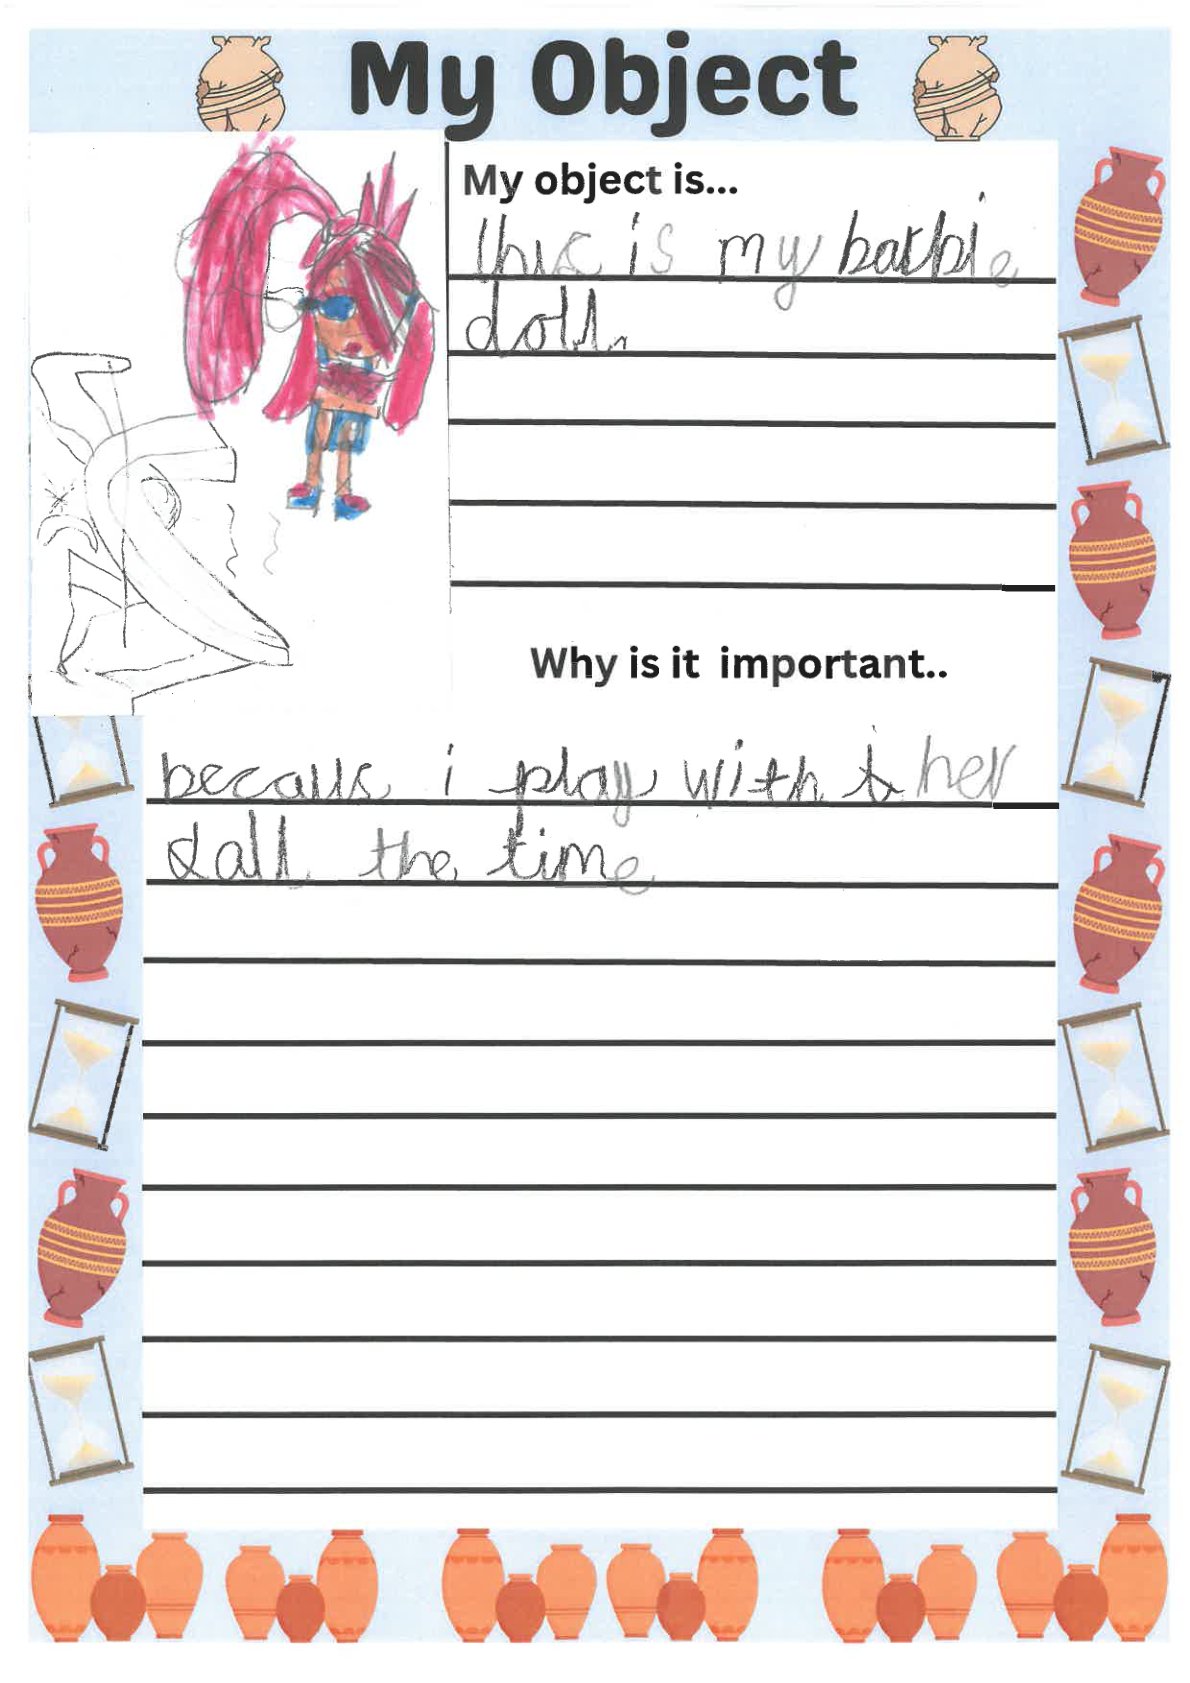 My Object
My object is...
this is my barbie
doll.
Why is it important..
becaus i play with her
all the time